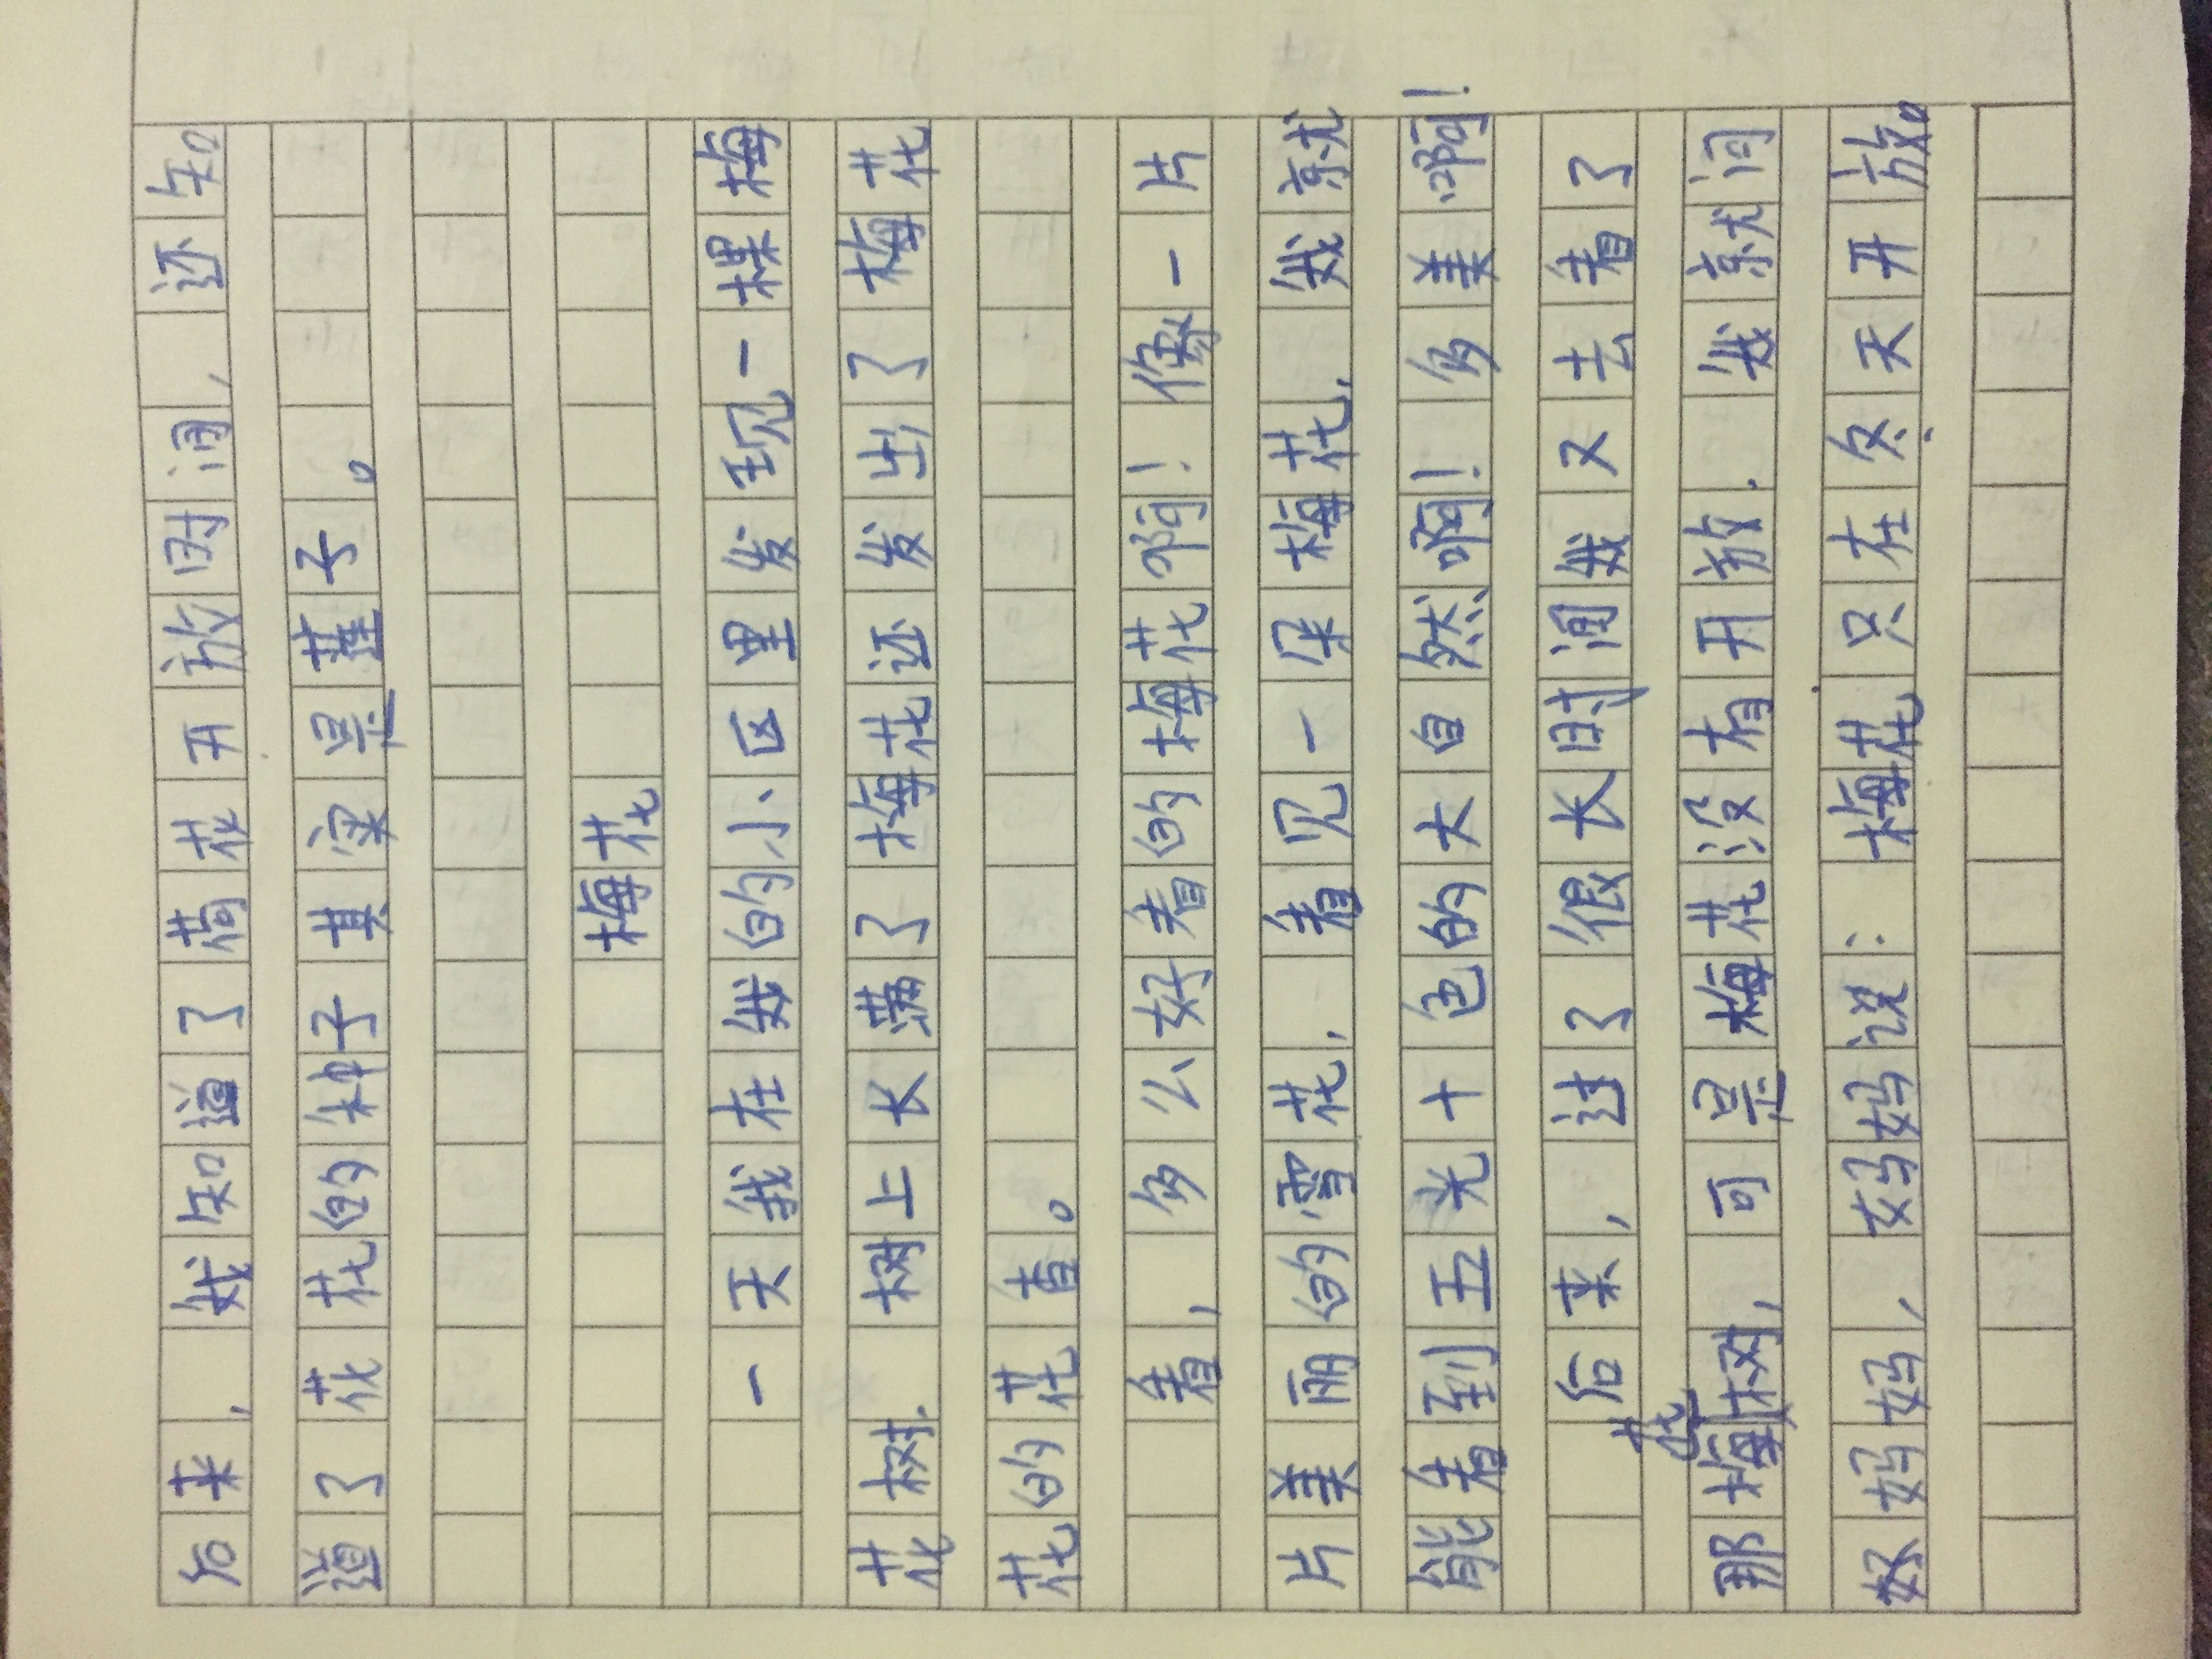 后来，我知道了荷花开放时间，还知
道了花花的种子其实是莲子。
梅花
一天我在我的小区里发现一棵梅
花树.树上长满了梅花还发出了梅花
花的花香。
看，多么好看的梅花啊！像一片
片美丽的雪花，看见一朵梅花，我就
能看到五光十色的大自然啊！多美啊！
后来，过了很长时间我又去看了
那梅花树，可是梅花没有开放.我就问
妈妈，妈妈说：梅花只在冬天开放。